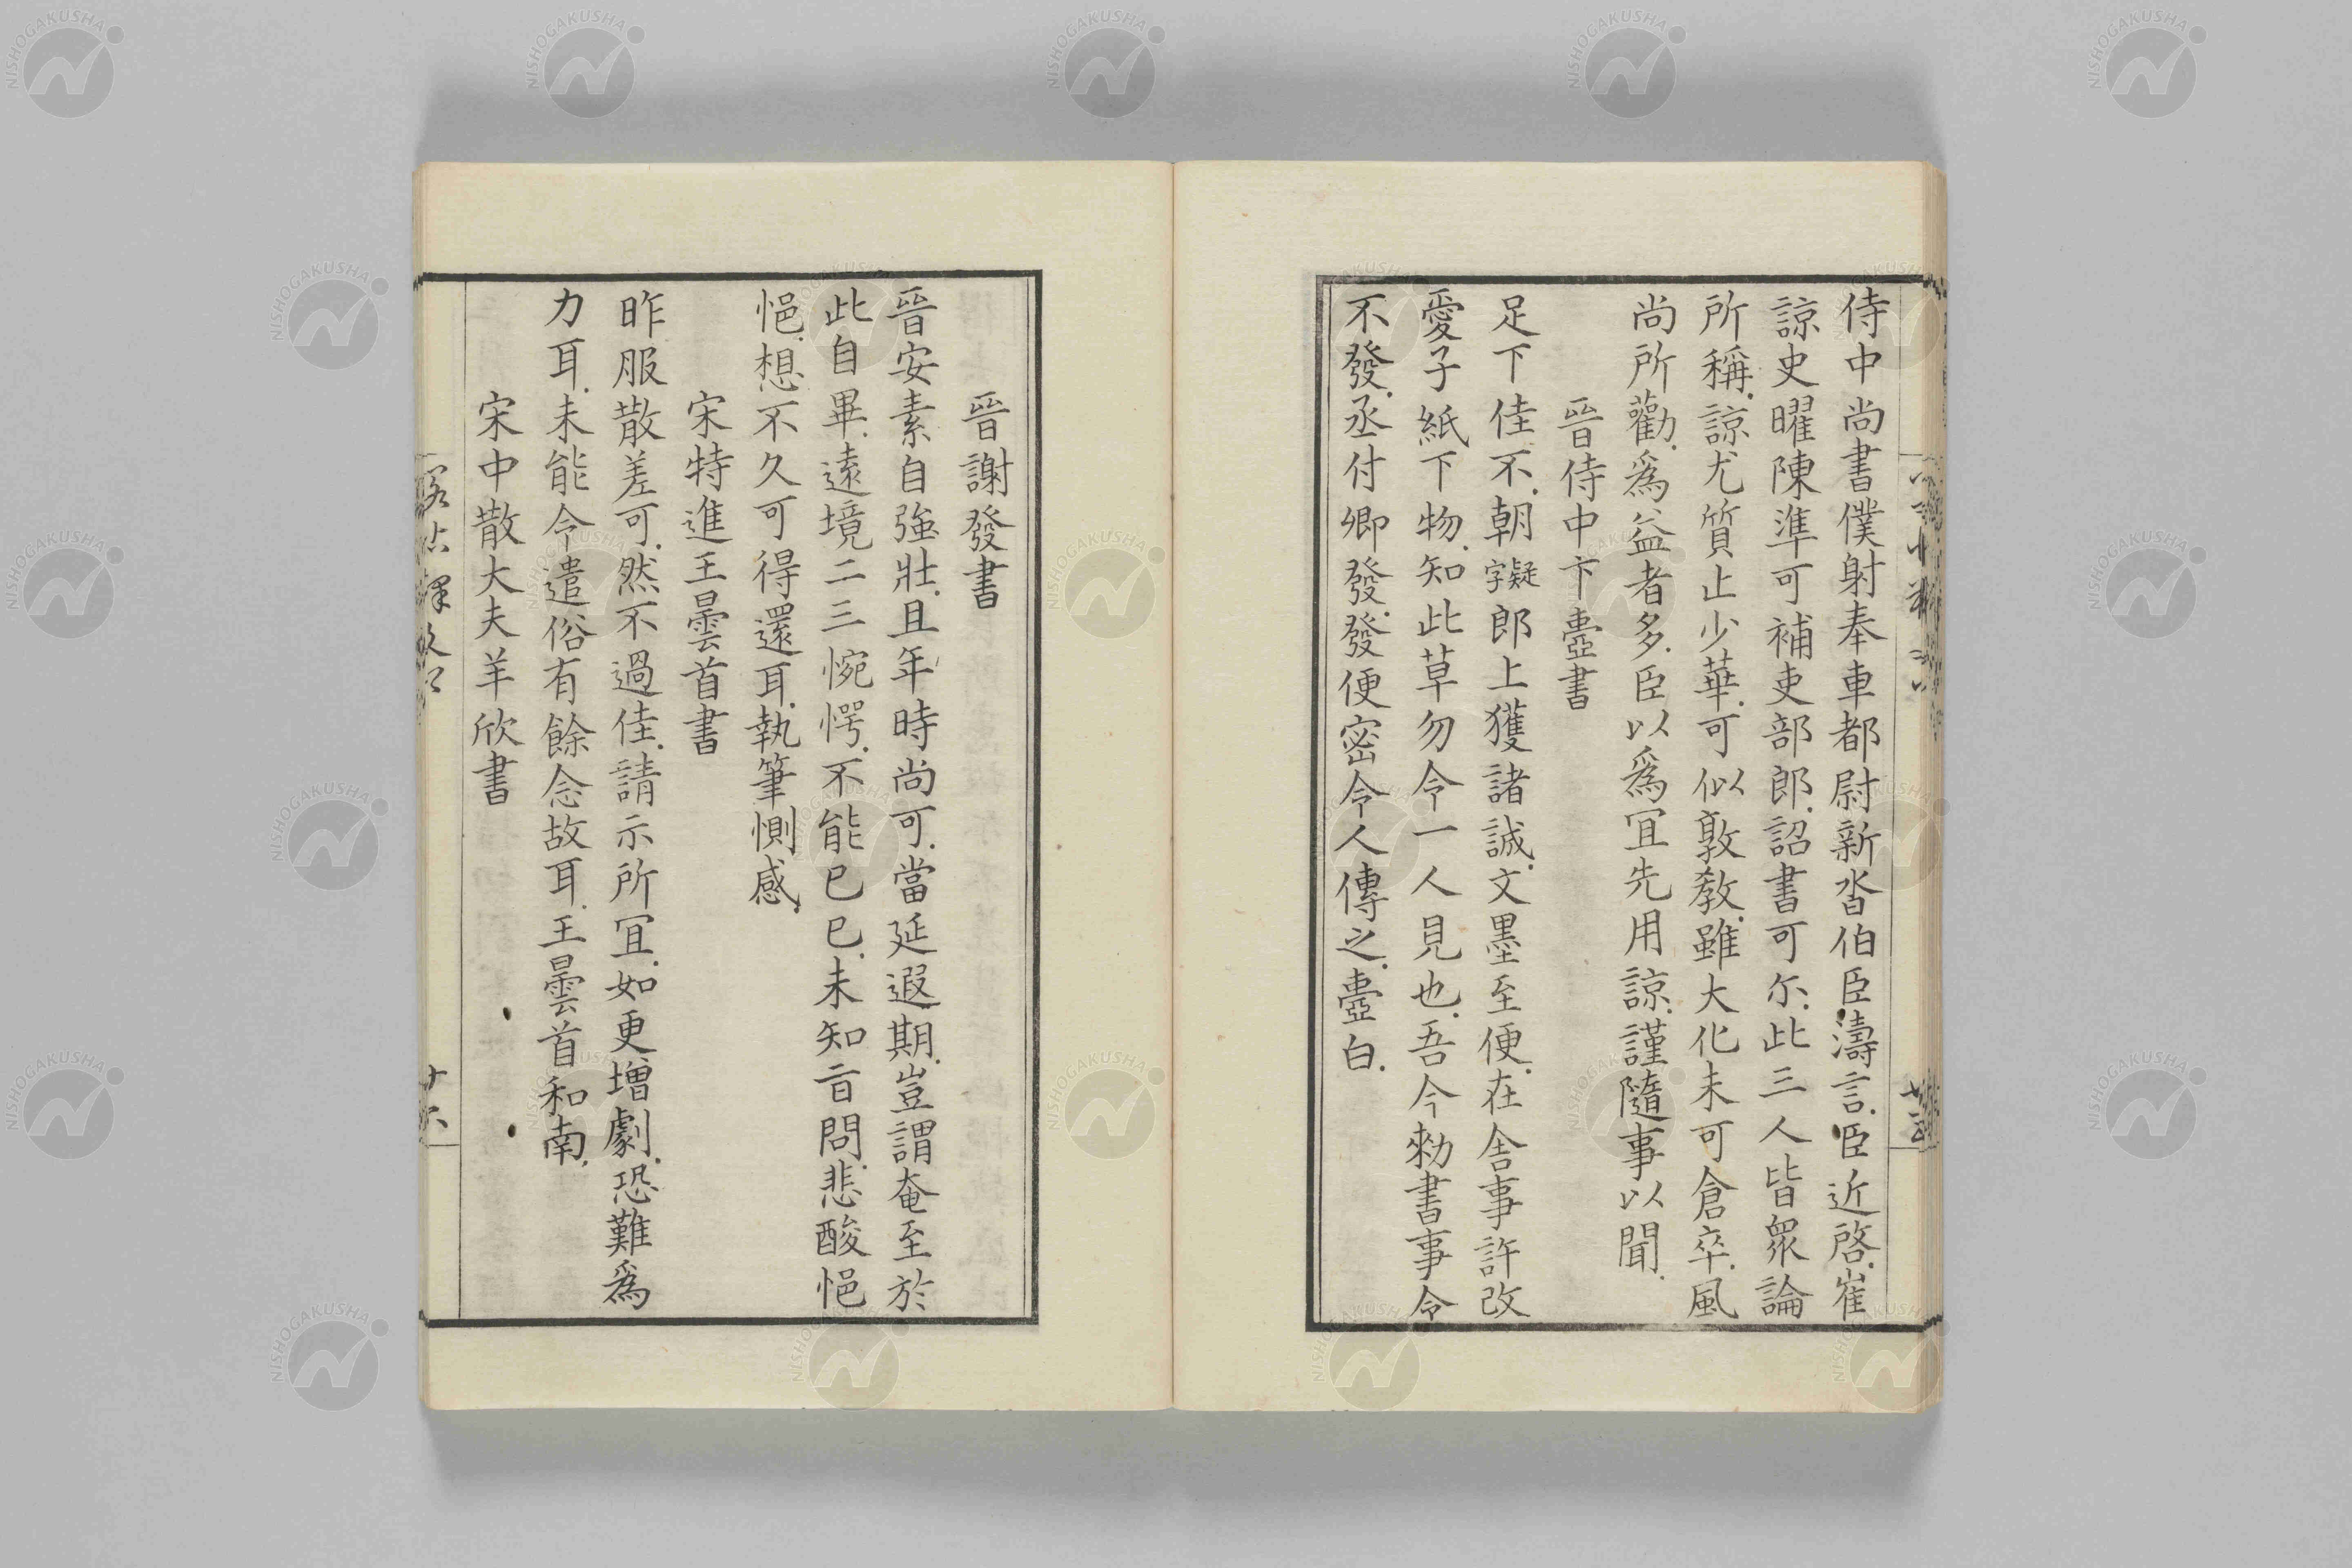 侍中尚書僕射奉車都尉新沓伯臣濤言臣近啓崔
諒史曜陳準可補吏部郎詔書可尓此三人皆衆論
所稱諒尤質止少華可似敦教雖大化未可倉卒風
尚所勸爲益者多臣以爲冝先用諒謹隨事以聞
晉侍中卞壼書
足下佳不朝字疑郎上獲諸誠文墨至便在舍事許改
愛子紙下物知此草勿令一人見也吾今勑書事令
不發丞付卿發發便密令人傳之壼白
晉謝發書
晉安素自強壯且年時尚可當延遐期豈謂奄至於
此自畢遠境二三惋愕不能已已未知㫖問悲酸悒
悒想不久可得還耳執筆惻感
宋特進王曇首書
昨服散差可然不過佳請示所冝如更增劇恐難爲
力耳未能令遣俗有餘念故耳王曇首和南
宋中散大夫羊欣書
NISHOGAKUSHA